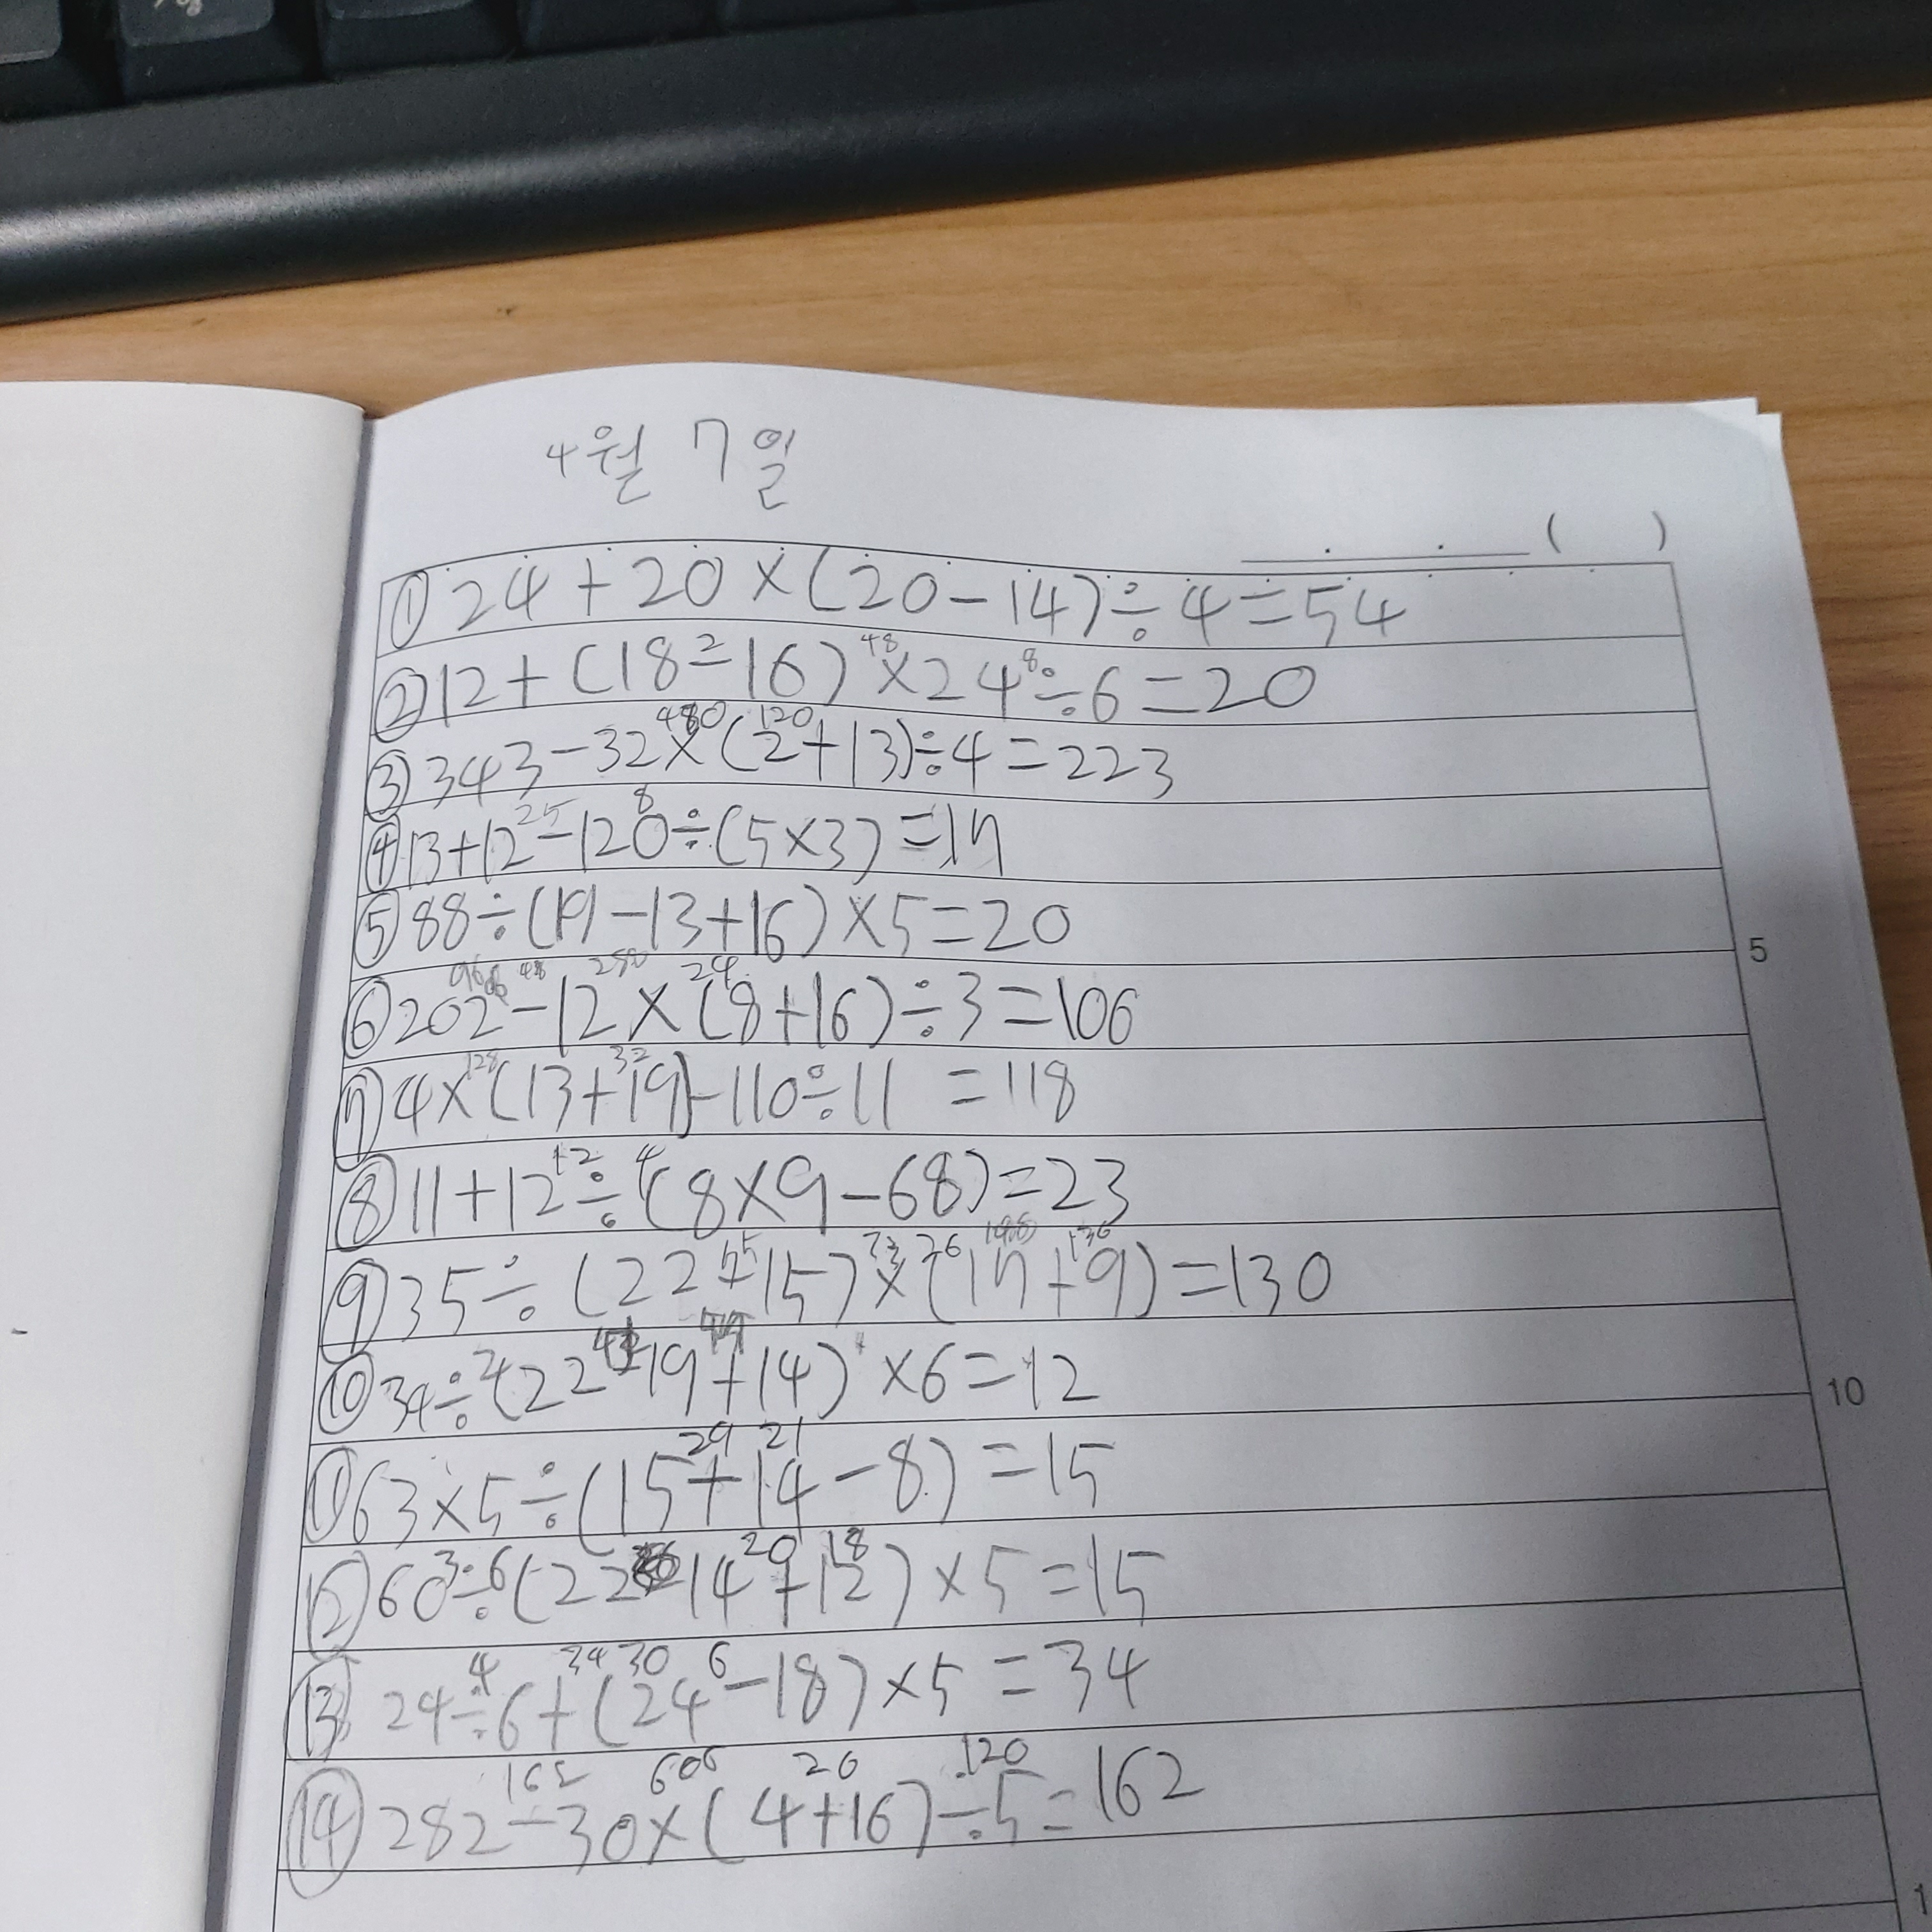 4월 7일
( )
① 24+20×(20-14)÷4=54
② 12+(18-16)×24÷6=20
③ 343-32×(2+13)÷4=223
④ 13+12-120÷(5×3)=17
⑤ 88÷(19-13+16)×5=20
5
⑥ 202-12×(8+16)÷3=106
⑦ 4×(13+19)-110÷11=118
⑧ 11+12÷(8×9-68)=23
⑨ 35÷(22-15)×(17+9)=130
⑩ 34÷(22-19+14)×6=12
10
⑪ 63×5÷(15+14-8)=15
⑫ 60÷(22-14+12)×5=15
⑬ 24÷6+(24-18)×5=34
⑭ 282-30×(4+16)÷5=162